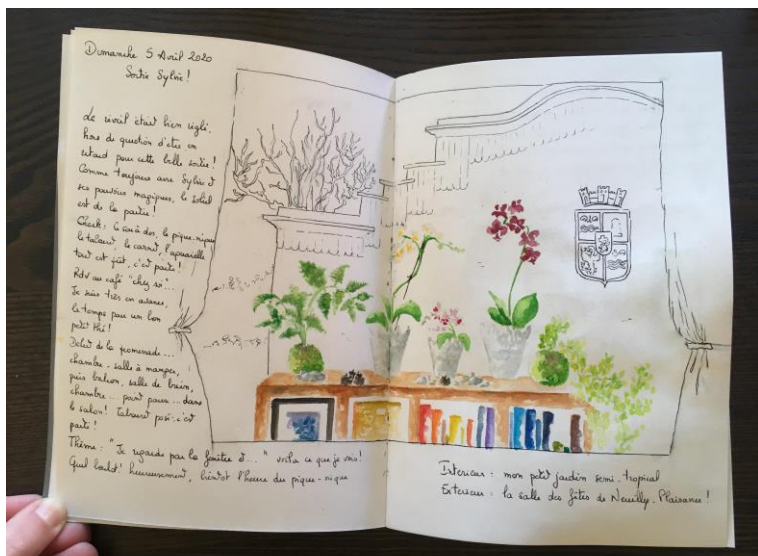 Dimanche 5 Avril 2020
Sortie Sylvie !
Le réveil était bien réglé,
hors de question d'être en
retard pour cette belle sortie !
Comme toujours avec Sylvie et
ses pouvoirs magiques, le soleil
est de la partie !
Check : le sac à dos, le pique-nique
le tabouret, le carnet, l'aquarelle
tout est prêt, c'est parti !
Rdv au café "chez
Je suis très en avance,
le temps pour un bon
petit thé !
Début de la promenade...
chambre - salle à manger,
puis balcon, salle de bain,
chambre... pour ... dans
le salon ! Tabouret posé : c'est
parti !
Thème : "Je regarde par la fenêtre et..." voilà ce que je vois !
Quel boulot ! heureusement, bientôt l'heure du pique-nique
Intérieur : mon petit jardin semi-tropical
Extérieur : la salle des fêtes de Neuilly-Plaisance !